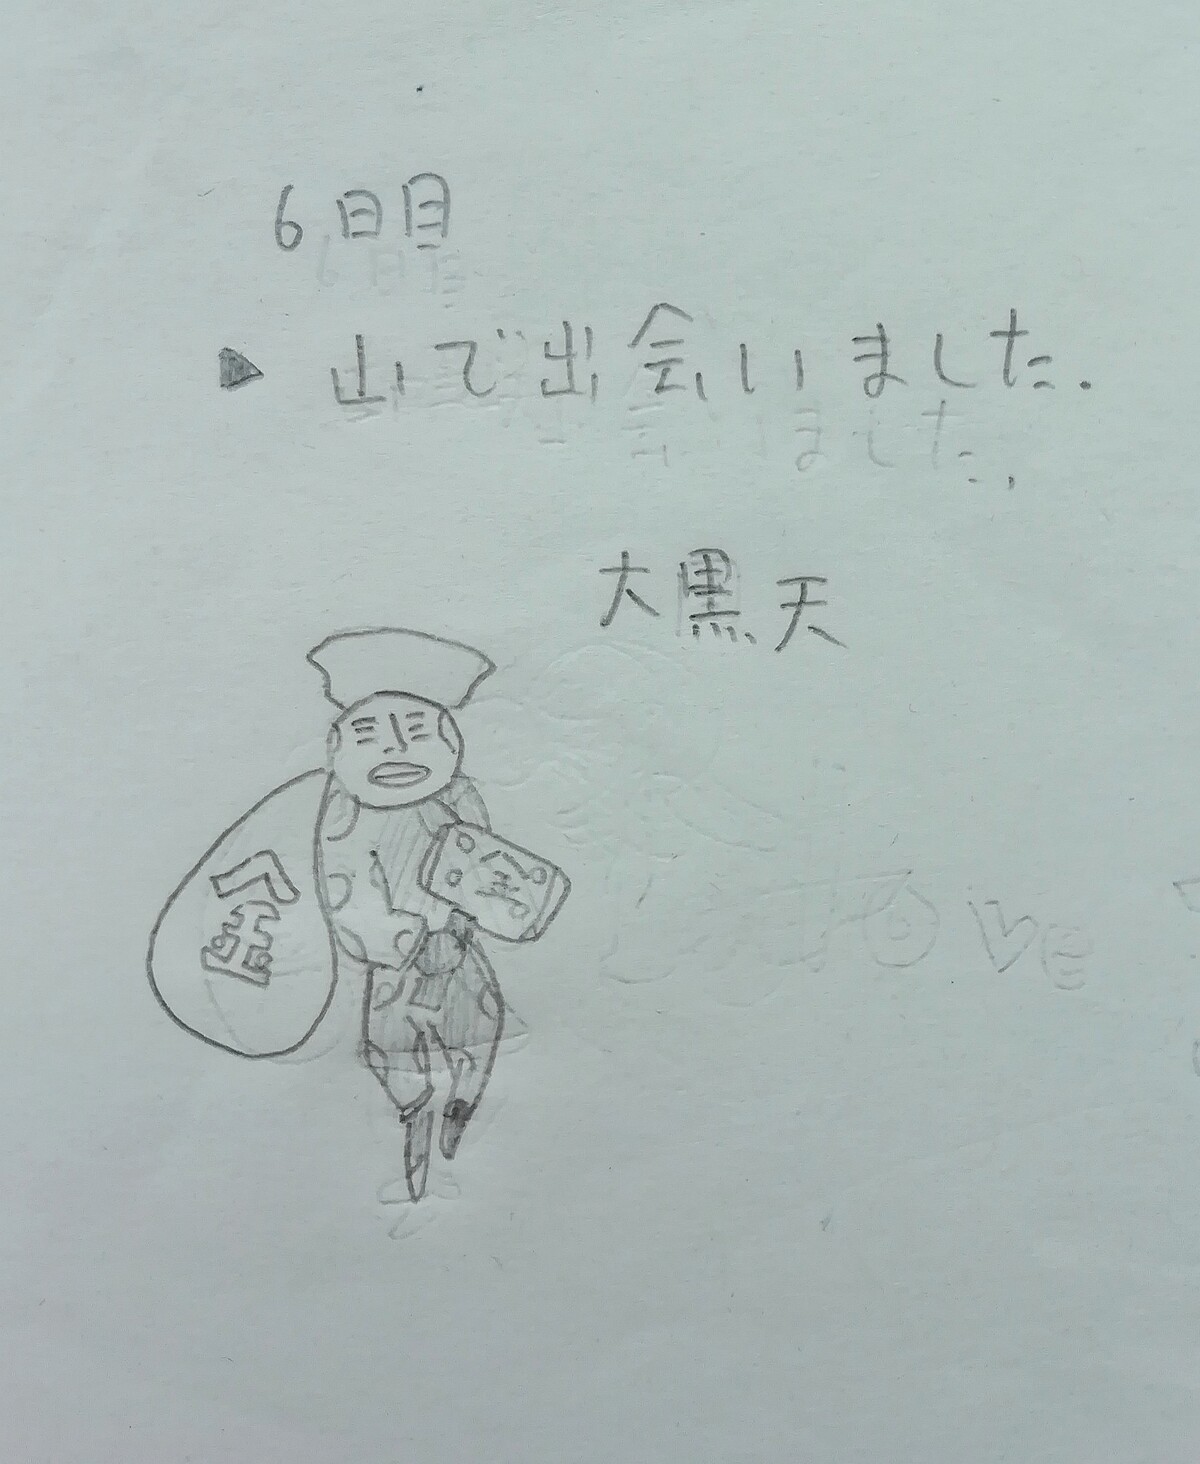 6日目
▶ 山で出会いました.
大黒天
金
love